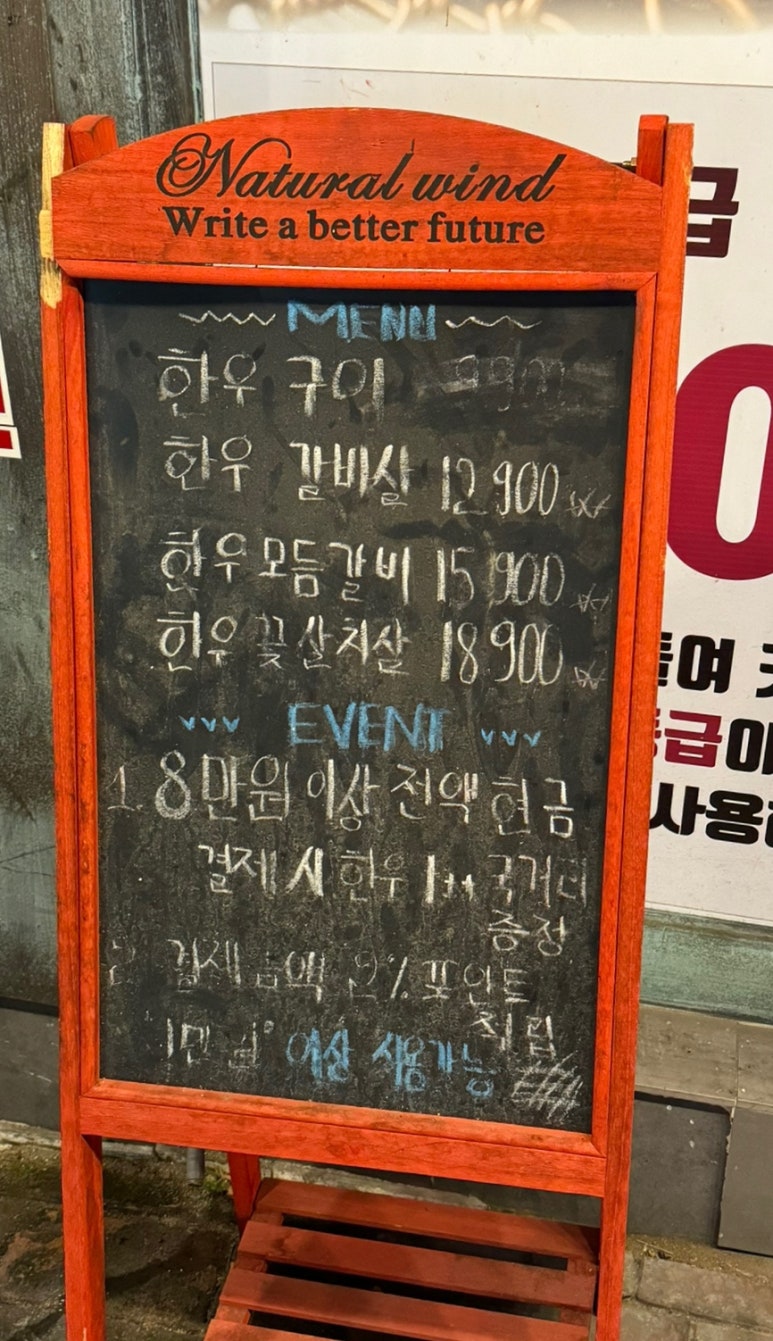 Natural wind
Write a better future
MENU
한우 구이
한우 갈비살 12,900 ₩
한우 모듬갈비 15,900 ₩
한우 꽃살치살 18,900 ₩
EVENT
1. 8만원 이상 전액 현금
결제 시 한우 1++ 국거리
증정
2 결제 금액 2% 포인트
적립
1만원 이상 사용가능
급
0
들여
등급이
사용